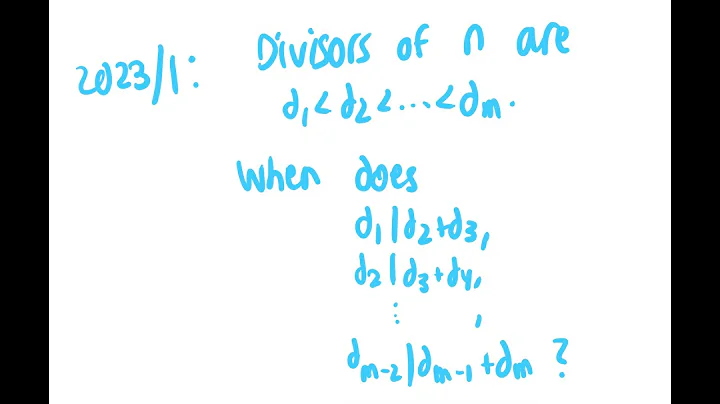 2023/1: Divisors of n are
d₁ < d₂ < ... < dₘ.
When does
d₁ | d₂ + d₃,
d₂ | d₃ + d₄,
⋮ ,
dₘ₋₂ | dₘ₋₁ + dₘ ?